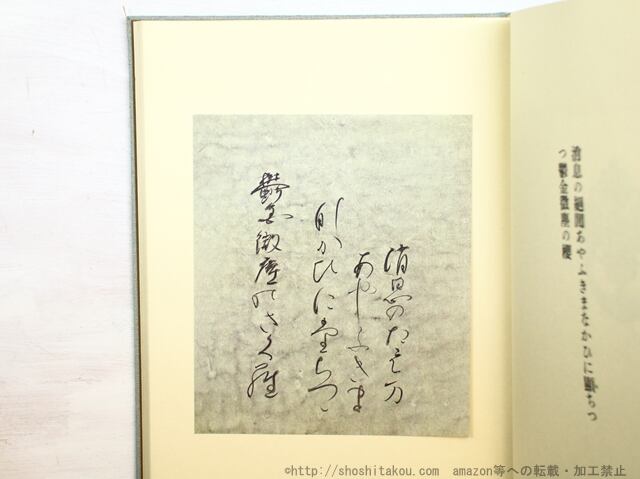 消息の絶間あやふきまなかひに顯ちつ
つ鬱金微塵の櫻
消息のたえ万
あやふきま
那かひに堂ちつつ
鬱金微塵のさく羅
©http://shoshitakou.com amazon等への転載・加工禁止